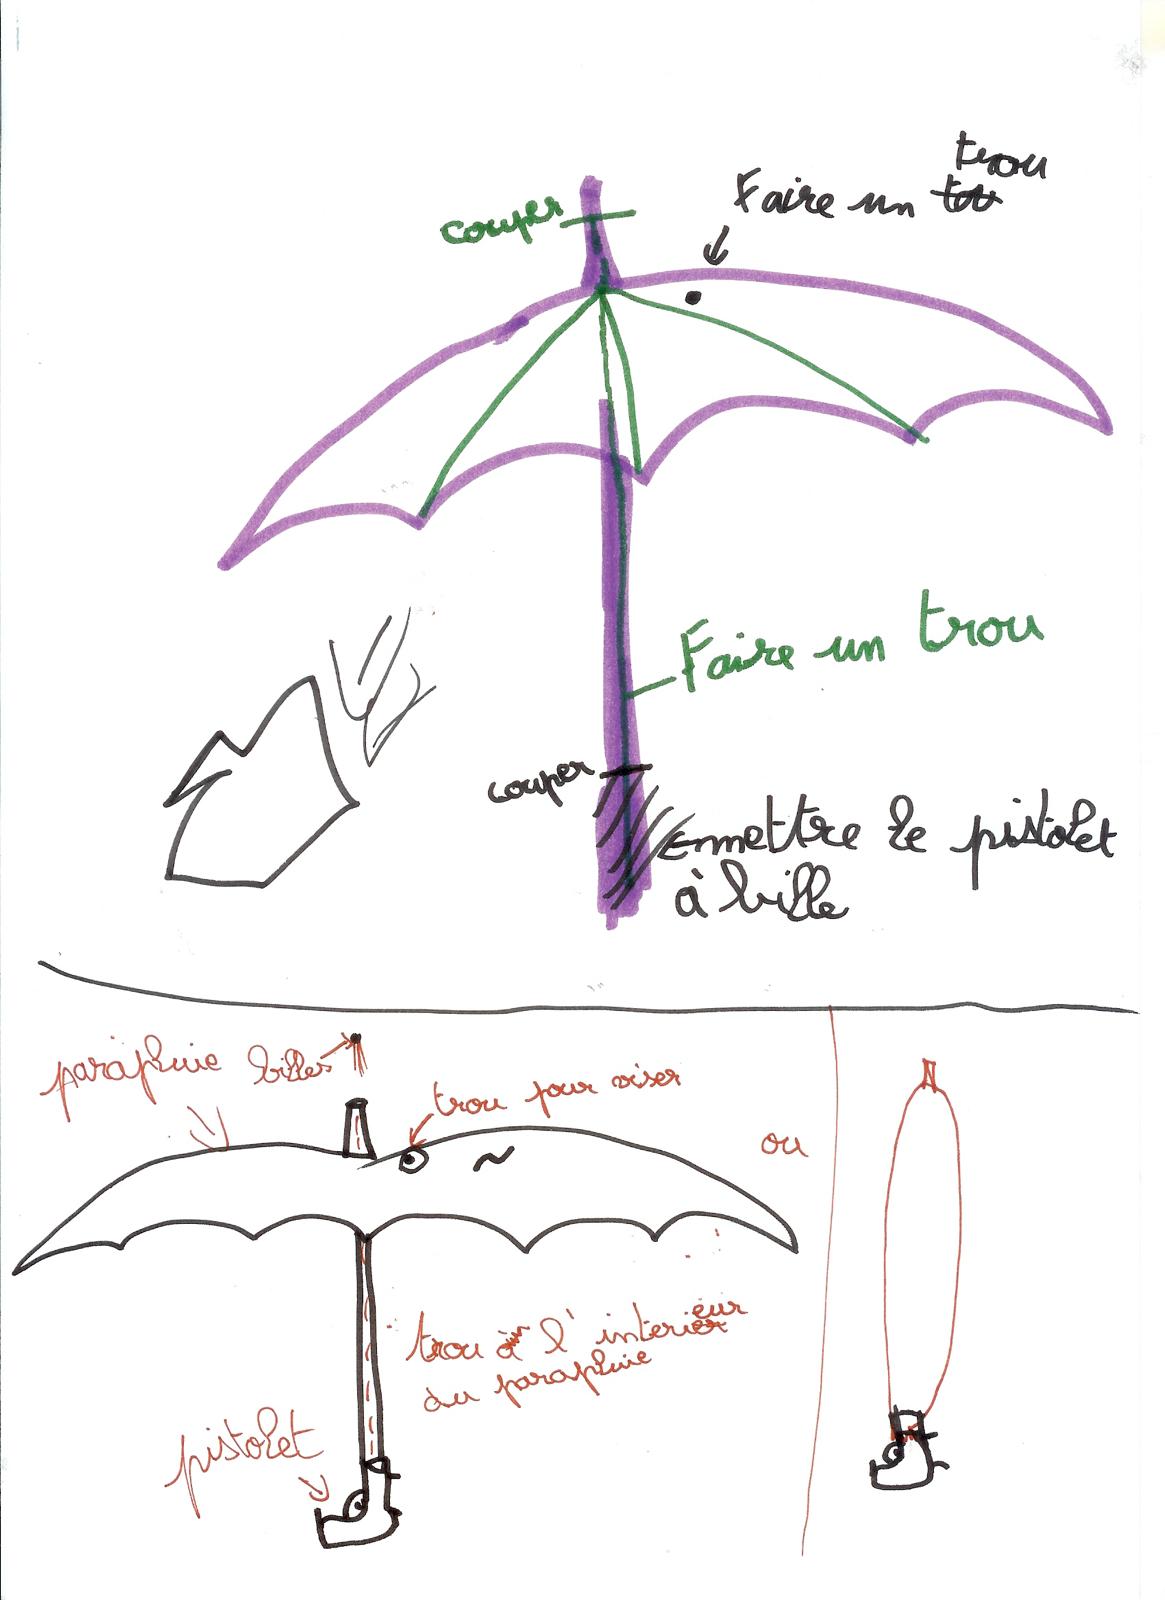 couper
Faire un trou
Faire un trou
couper
Enmettre le pistolet
à bille
parapluie
billes
trou pour viser
ou
trou à l'interieur
du parapluie
pistolet